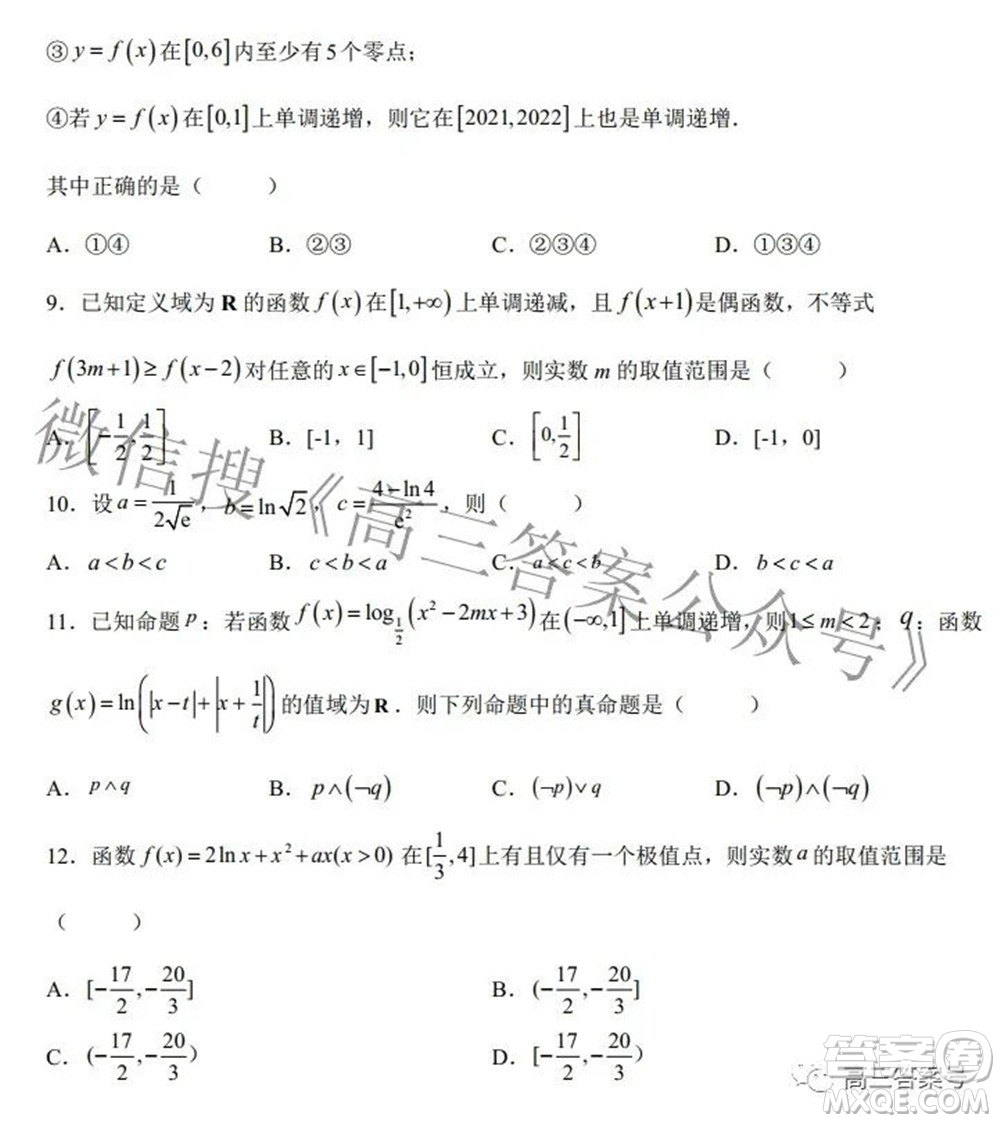 ③y=f(x)在[0,6]内至少有5个零点;
④若y=f(x)在[0,1]上单调递增，则它在[2021,2022]上也是单调递增.
其中正确的是（ ）
A. ①④ B. ②③ C. ②③④ D. ①③④
9. 已知定义域为 R 的函数 f(x)在[1,+∞)上单调递减，且 f(x+1)是偶函数，不等式
f(3m+1)≥f(x−2)对任意的 x∈[−1,0]恒成立，则实数 m 的取值范围是（ ）
A. [−1/2,1/2] B. [-1，1] C. [0,1/2] D. [-1，0]
10. 设 a=1/(2√e)，b=ln√2，c=(4−ln4)/e²，则（ ）
A. a<b<c B. c<b<a C. a<c<b D. b<c<a
11. 已知命题 p：若函数 f(x)=log_{1/2}(x²−2mx+3)在(−∞,1]上单调递增，则1≤m<2；q：函数
g(x)=ln(|x−t|+|x+1/t|)的值域为 R．则下列命题中的真命题是（ ）
A. p∧q B. p∧(¬q) C. (¬p)∨q D. (¬p)∧(¬q)
12. 函数 f(x)=2lnx+x²+ax(x>0) 在[1/3,4]上有且仅有一个极值点，则实数 a 的取值范围是
（ ）
A. [−17/2,−20/3] B. (−17/2,−20/3]
C. (−17/2,−20/3) D. [−17/2,−20/3)
微信搜《高三答案公众号》
答案卷
高三答案号
MXQE.COM